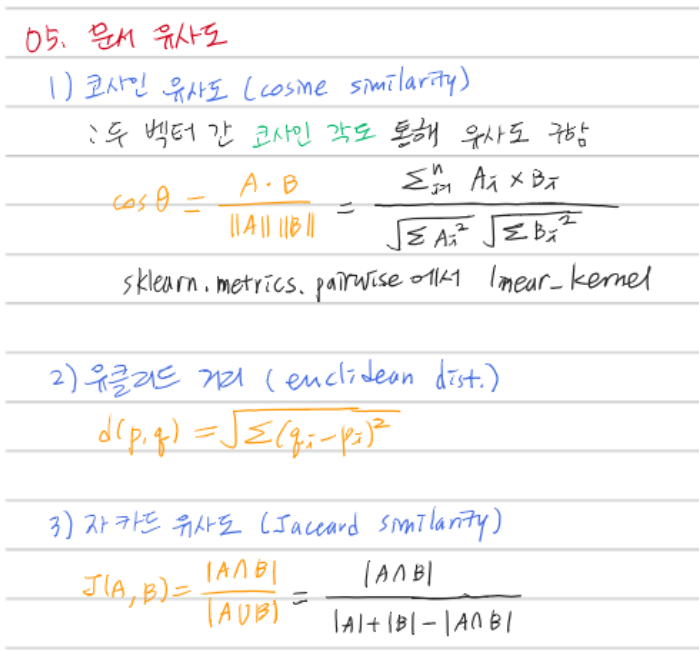 05. 문서 유사도
1) 코사인 유사도 (cosine similarity)
: 두 벡터 간 코사인 각도 통해 유사도 구함
cos θ = A · B / ||A|| ||B|| = Σⁿᵢ₌₁ Aᵢ × Bᵢ / √ΣAᵢ² √ΣBᵢ²
sklearn.metrics.pairwise 에서 linear_kernel
2) 유클리드 거리 (euclidean dist.)
d(p,q) = √Σ(qᵢ-pᵢ)²
3) 자카드 유사도 (Jaccard similarity)
J(A,B) = |A∩B| / |A∪B| = |A∩B| / |A|+|B|-|A∩B|